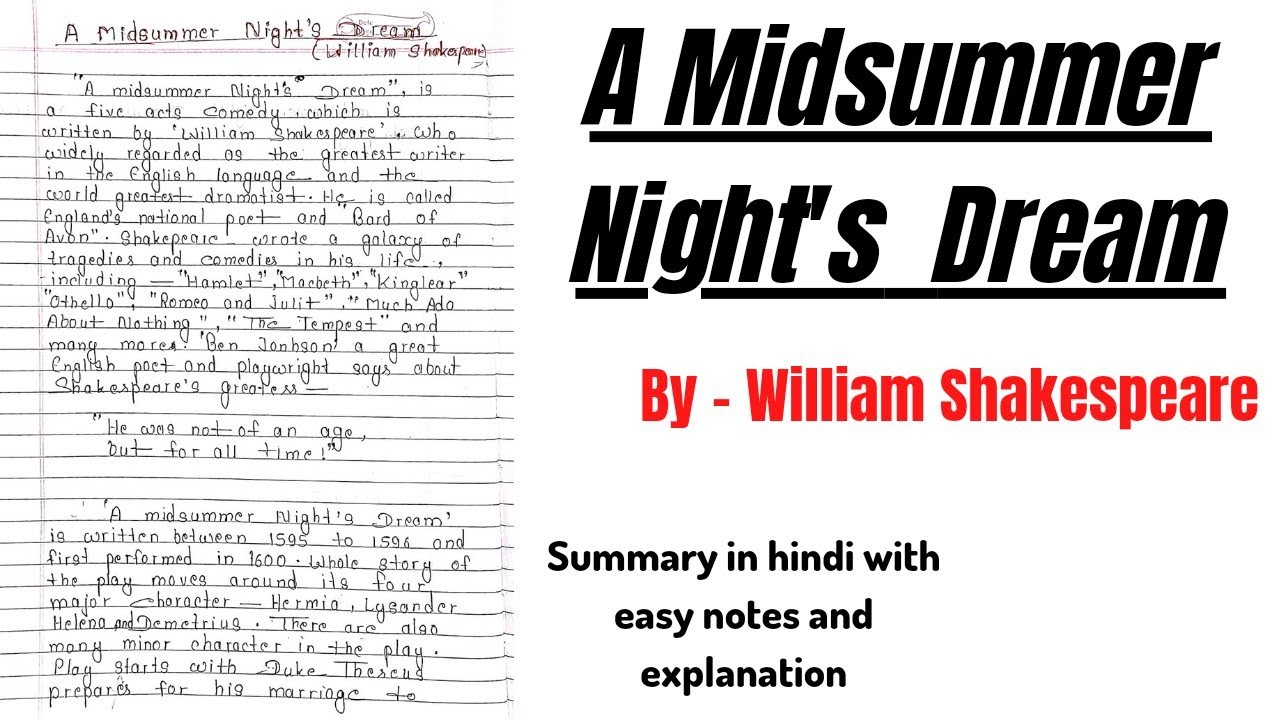 A Midsummer Night's Dream
(William Shakespeare)
"A midsummer Night's Dream", is
a five acts comedy which is
written by 'William Shakespeare'. Who
widely regarded as the greatest writer
in the English language and the
world greatest dramatist. He is called
England's national poet and "Bard of
Avon". Shakepeare wrote a galaxy of
tragedies and comedies in his life,
including — "Hamlet", "Macbeth", "Kinglear"
"Othello", "Romeo and Julit", "Much Ado
About Nothing", "The Tempest" and
many mores. 'Ben Jonhson' a great
English poet and playwright says about
Shakespeare's greatess —
"He was not of an age,
but for all time!"
'A midsummer Night's Dream'
is written between 1595 to 1596 and
first performed in 1600. Whole story of
the play moves around its four
major character — Hermia, Lysander
Helena and Demetrius. There are also
many minor character in the play.
Play starts with Duke Theseus
prepares for his marriage to
A Midsummer
Night's Dream
By - William Shakespeare
Summary in hindi with
easy notes and
explanation